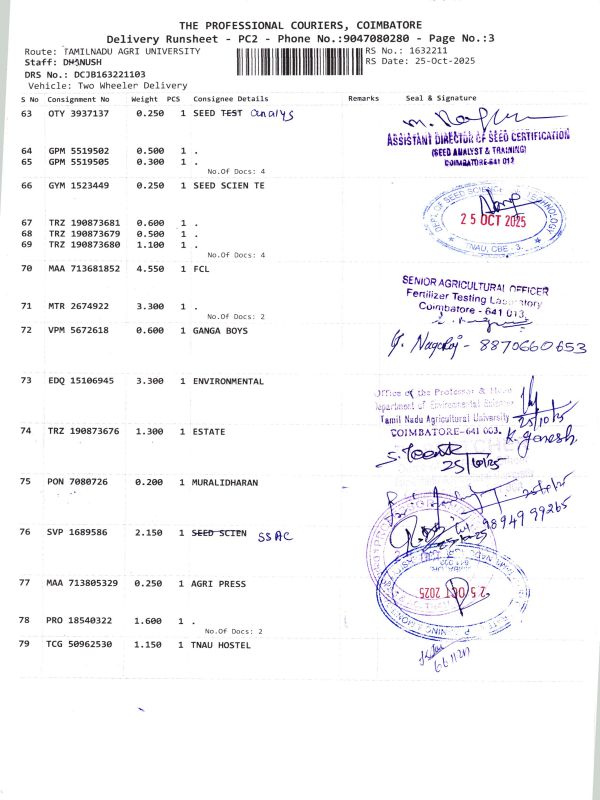 THE PROFESSIONAL COURIERS, COIMBATORE
Delivery Runsheet - PC2 - Phone No.:9047080280 - Page No.:3
Route: TAMILNADU AGRI UNIVERSITY RS No.: 1632211
Staff: DHANUSH RS Date: 25-Oct-2025
DRS No.: DCJB163221103
Vehicle: Two Wheeler Delivery
S No Consignment No Weight PCS Consignee Details Remarks Seal & Signature
63 OTY 3937137 0.250 1 SEED TEST analys
ASSISTANT DIRECTOR OF SEED CERTIFICATION
(SEED ANALYST & TRAINING)
COIMBATORE-641 013
64 GPM 5519502 0.500 1 .
65 GPM 5519505 0.300 1 .
No.Of Docs: 4
66 GYM 1523449 0.250 1 SEED SCIEN TE
DEPT. OF SEED SCIENCE & TECHNOLOGY
25 OCT 2025
TNAU, CBE - 3.
67 TRZ 190873681 0.600 1 .
68 TRZ 190873679 0.500 1 .
69 TRZ 190873680 1.100 1 .
No.Of Docs: 4
70 MAA 713681852 4.550 1 FCL
SENIOR AGRICULTURAL OFFICER
Fertilizer Testing Laboratory
Coimbatore - 641 013.
71 MTR 2674922 3.300 1 .
No.Of Docs: 2
72 VPM 5672618 0.600 1 GANGA BOYS
Y. Nagaraj - 8870660653
73 EDQ 15106945 3.300 1 ENVIRONMENTAL
Office of the Professor & Head
Department of Environmental Sciences
Tamil Nadu Agricultural University
COIMBATORE-641 003.
25/10/25
K. Ganesh
74 TRZ 190873676 1.300 1 ESTATE
25/10/25
75 PON 7080726 0.200 1 MURALIDHARAN
98949 99265
76 SVP 1689586 2.150 1 SEED SCIEN SSAC
77 MAA 713805329 0.250 1 AGRI PRESS
25 OCT 2025
78 PRO 18540322 1.600 1 .
No.Of Docs: 2
79 TCG 50962530 1.150 1 TNAU HOSTEL